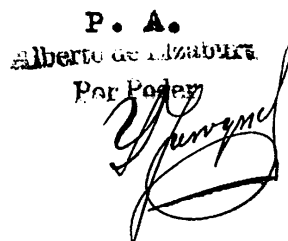 P. A.
Alberto de Elzaburu
Por Poder